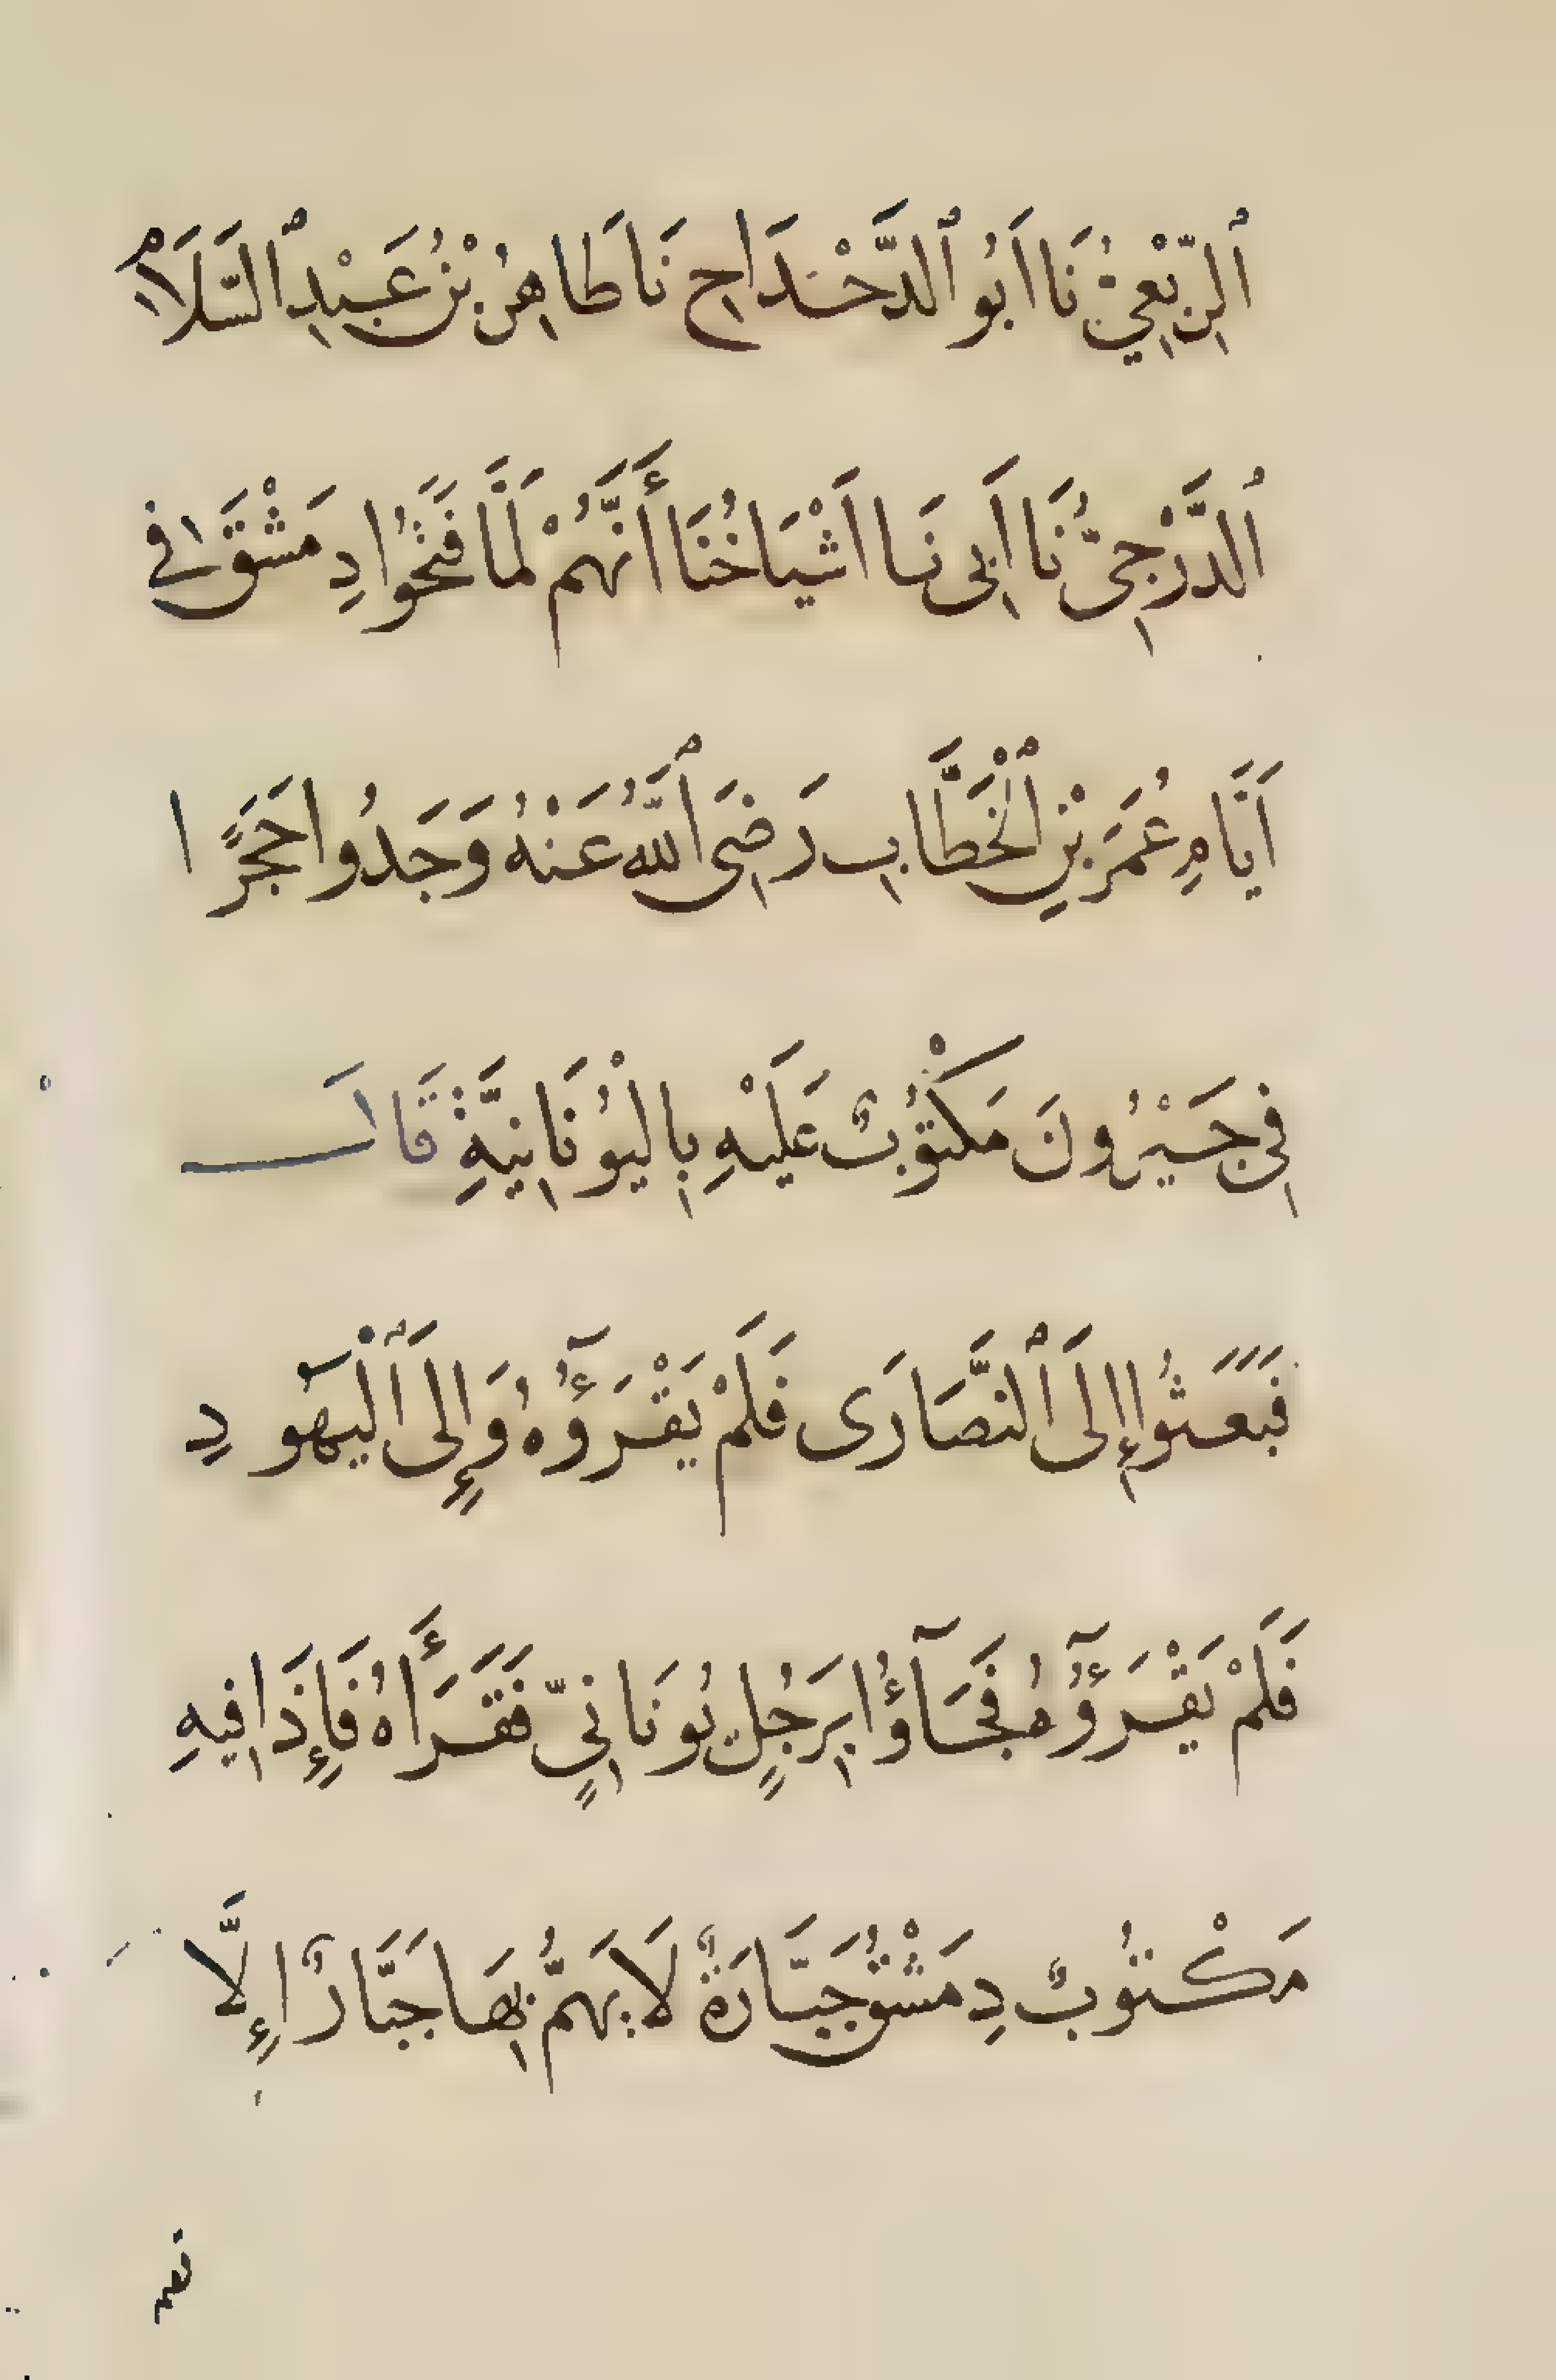 ٱلرَّبَعِيُّ نَا اَبُو ٱلدَّحْدَاحِ نَا طَاهِرُ بْنُ عَبْدِ ٱلسَّلَامِ
ٱلدَّرْجِىُّ نَا اَبِى نَا اَشْيَاخُنَا أَنَّهُمْ لَمَّا فَتَحُوا دِمَشْقَ فِى
اَيَّامِ عُمَرَ بْنِ ٱلْخَطَّابِ رَضِىَ ٱللَّهُ عَنْهُ وَجَدُوا حَجَرًا
فِى جَيْرُونَ مَكْتُوبٌ عَلَيْهِ بِالْيُونَانِيَّةِ قَالَ
فَبَعَثُوا إِلَى ٱلنَّصَارَى فَلَمْ يَقْرَؤُهُ وَإِلَى ٱلْيَهُودِ
فَلَمْ يَقْرَؤُهُ فَجَآؤُا بِرَجُلٍ يُونَانِىٍّ فَقَرَأَهُ فَإِذَا فِيهِ
مَكْتُوبٌ دِمَشْقُ جَبَّارَةٌ لَا يَهُمُّ بِهَا جَبَّارٌ إِلَّا